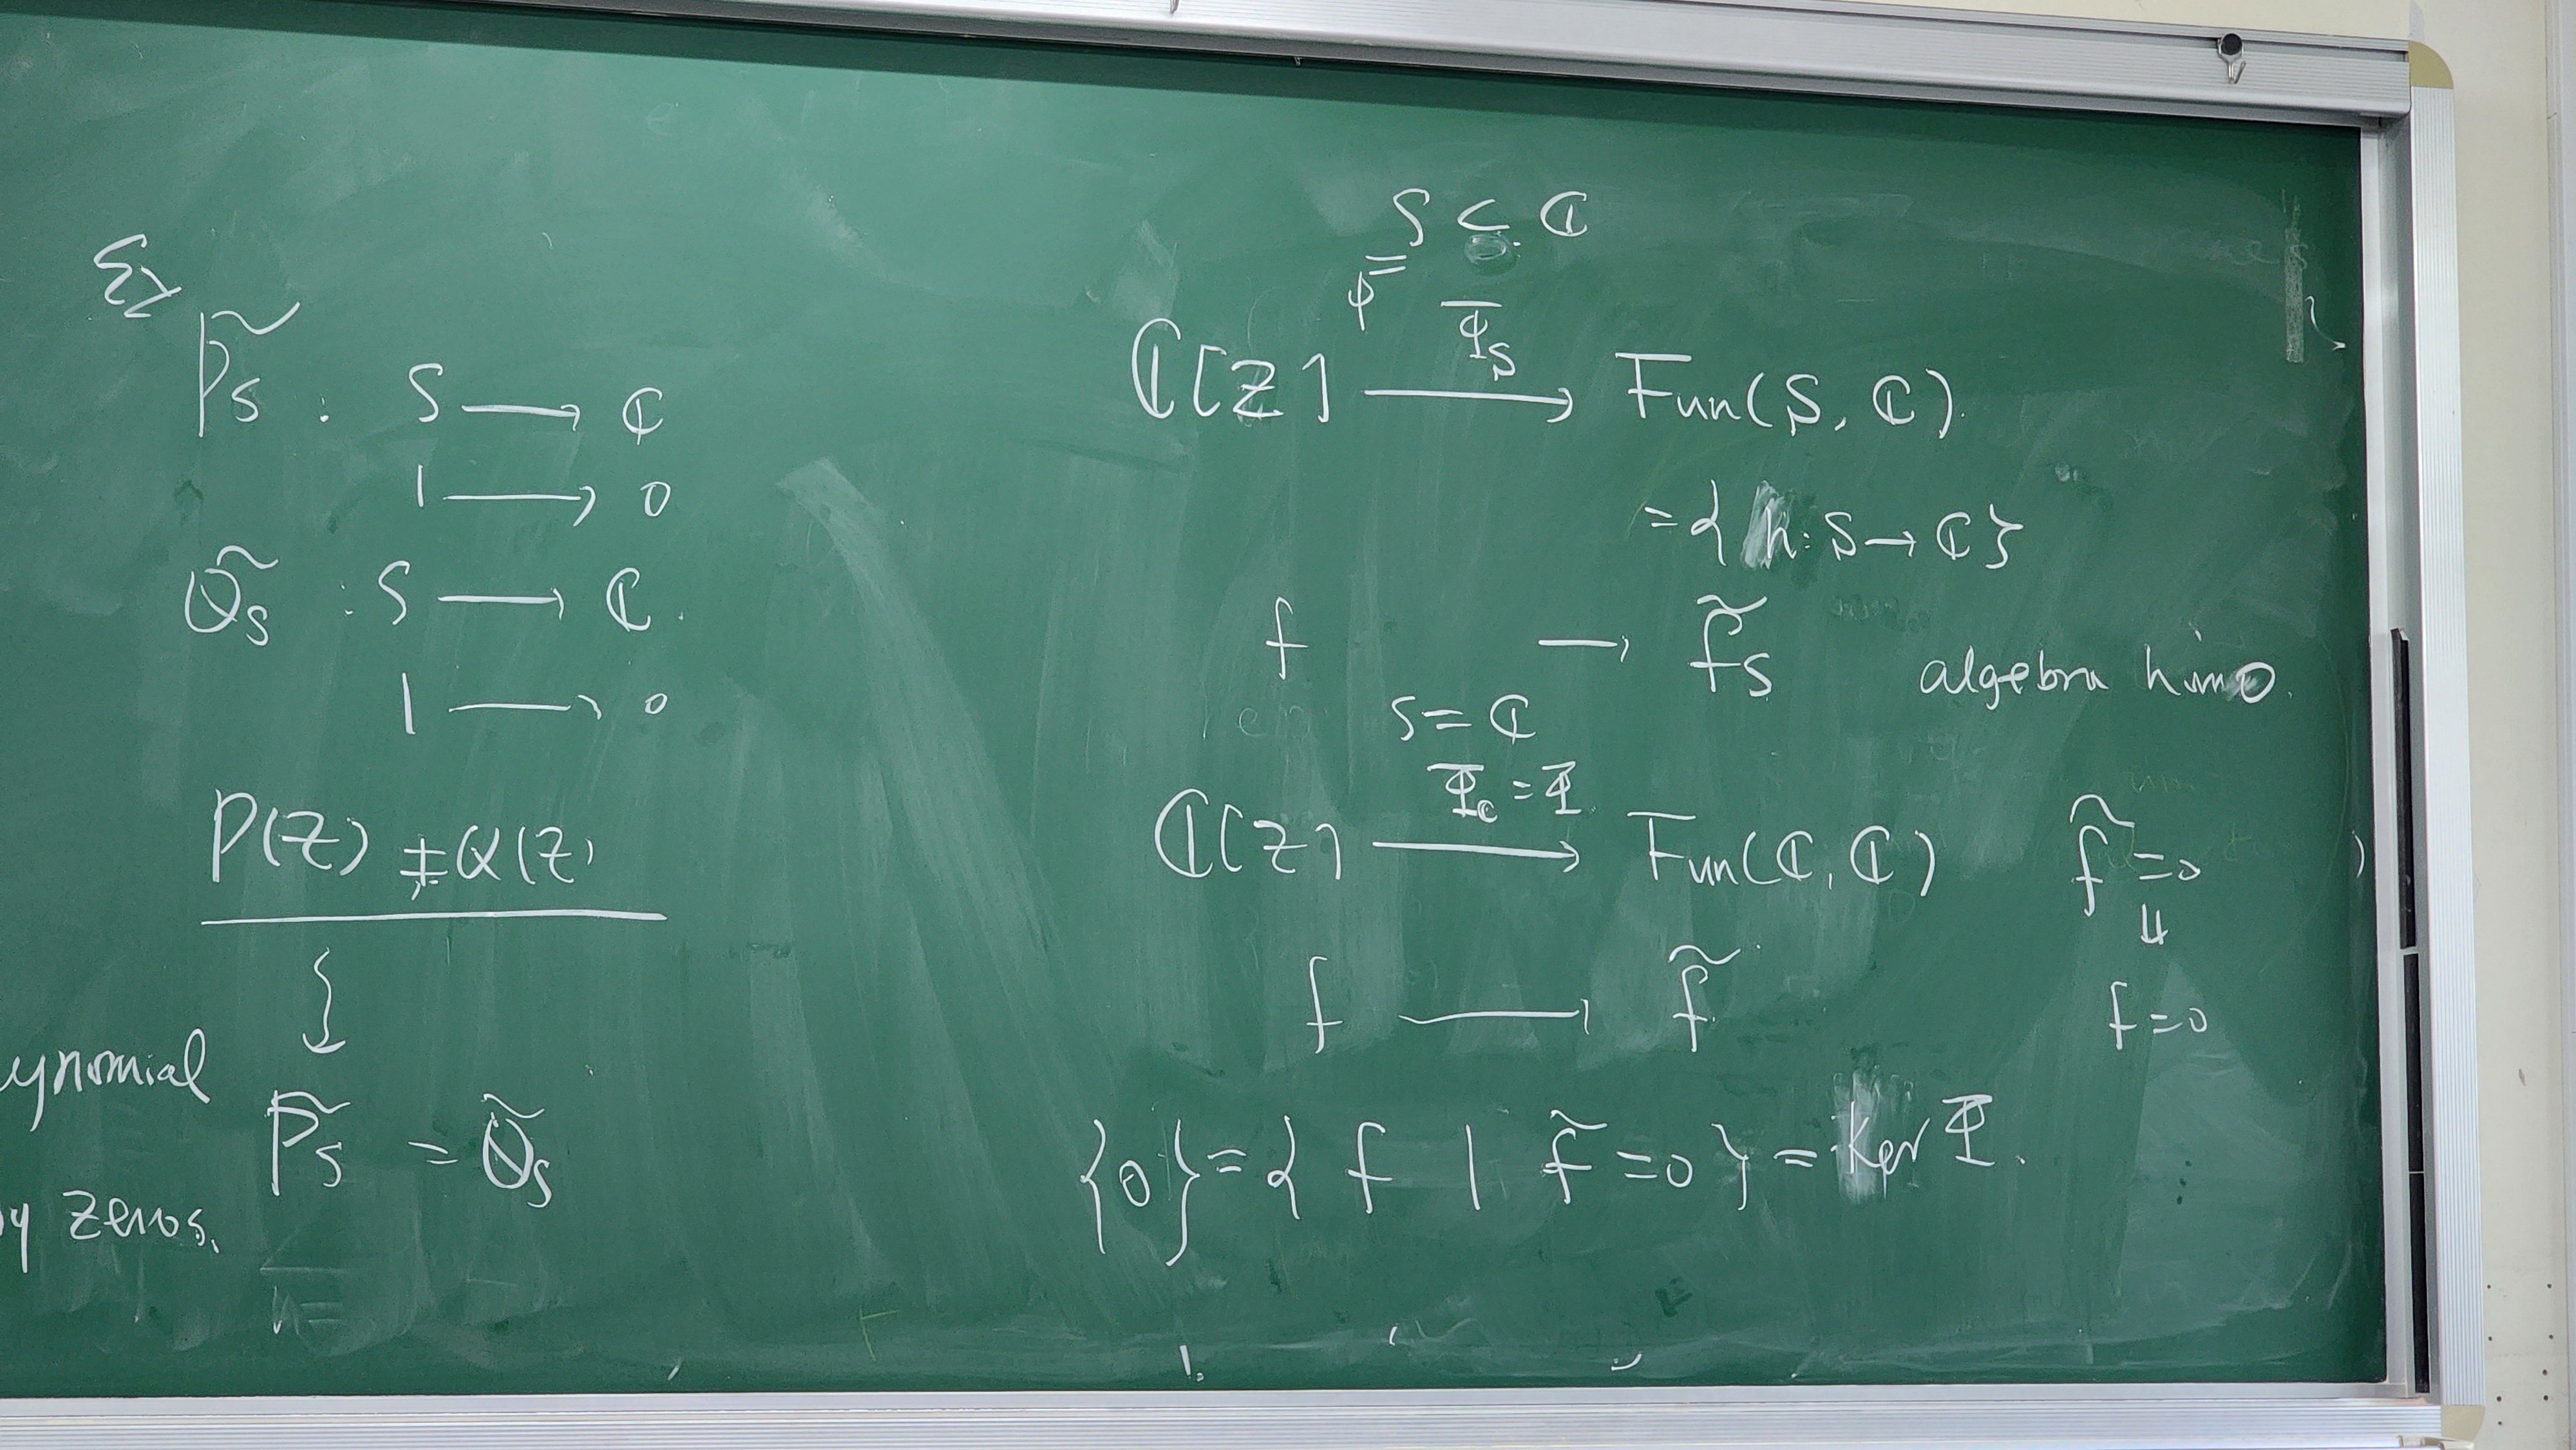 Ex
P̃s : S → ℂ
1 → 0
Q̃s : S → ℂ.
1 → 0
P(Z) ≠ Q(Z)
ynomial
P̃s = Q̃s
y zeros.
S ⊂ ℂ
ϕ
Φ_S
ℂ[Z] → Fun(S, ℂ).
= { h: S → ℂ }
f → f̃s algebra homo.
S = ℂ
Φ_ℂ = Φ
ℂ[Z] → Fun(ℂ, ℂ)
f̃ = 0
⇓
f = 0
f → f̃
{0} = { f | f̃ = 0 } = Ker Φ.